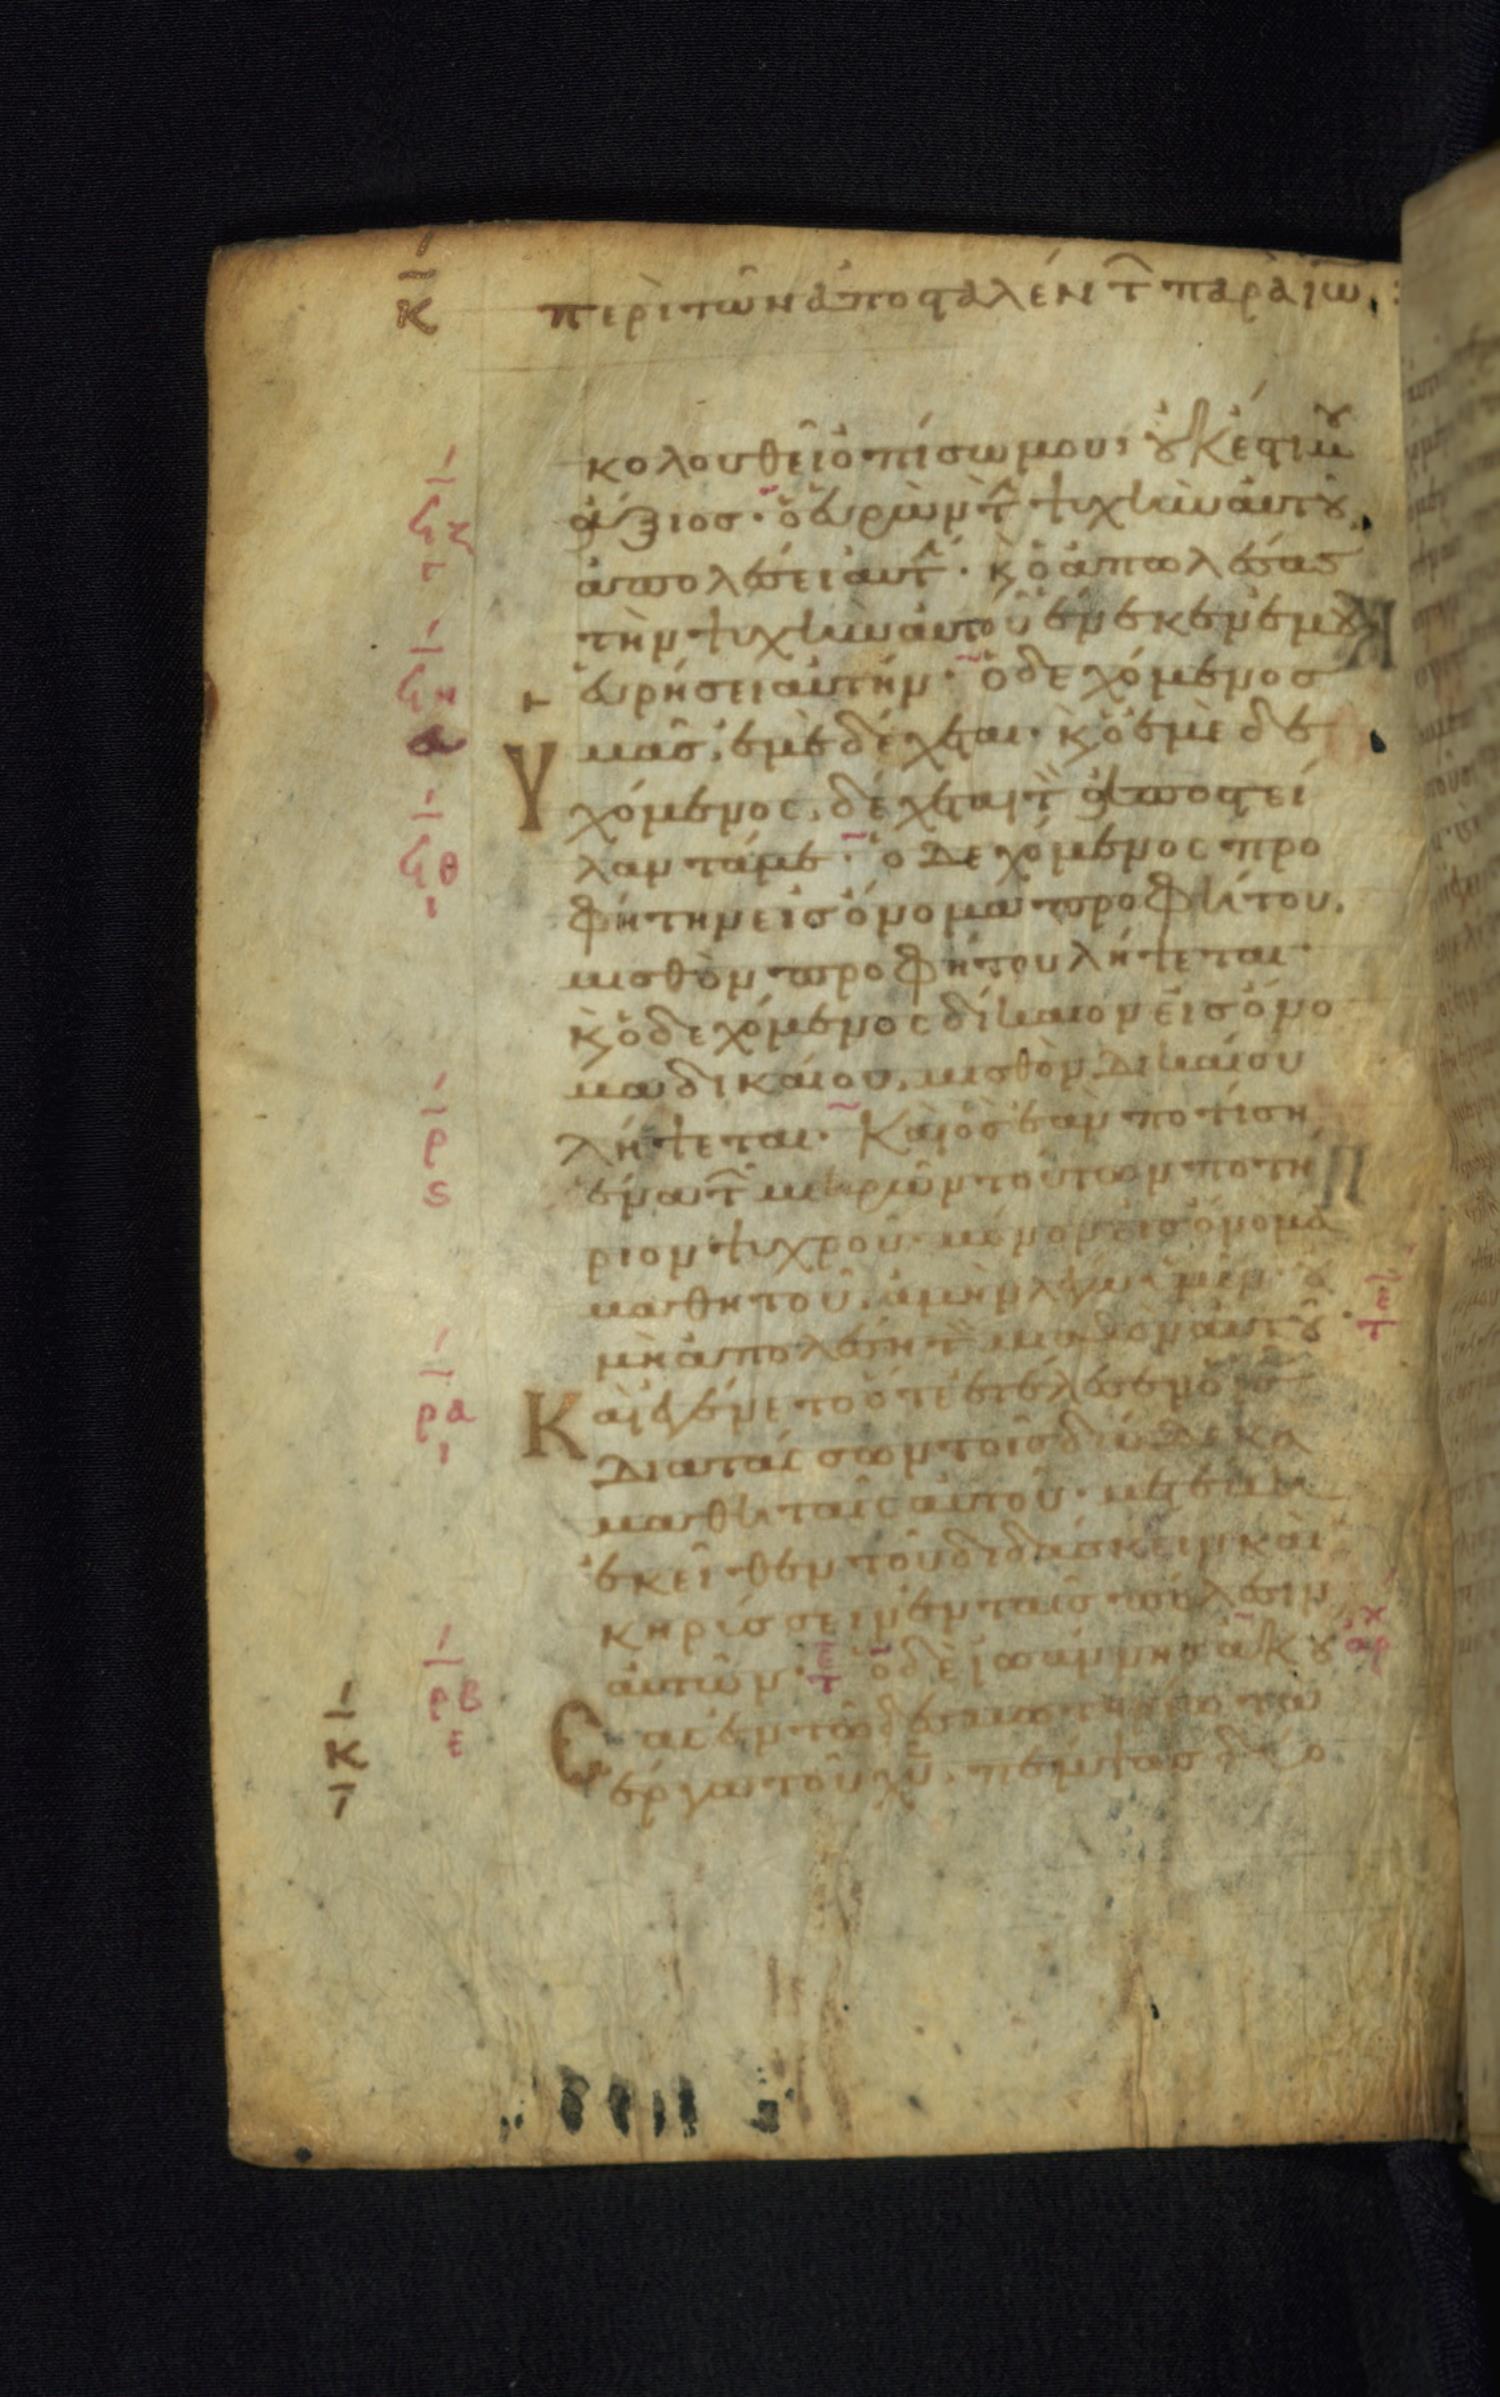 Κ περὶ τῶν ἀποσταλέντ παρὰ ἰω :
κολουθεῖ ὀπίσω μου, οὐκ ἔστι μου
ἄξιος· ὁ εὑρὼν τ ψυχὴν αὐτοῦ,
ϟζ
ἀπολέσει αὐτ· κ ὁ ἀπολέσας
τὴν ψυχὴν αὐτοῦ ἕνεκεν ἐμοῦ
ϟη
εὑρήσει αὐτήν· ὁ δεχόμενος
Υ μᾶς, ἐμὲ δέχεται· κ ὁ ἐμὲ δε
χόμενος, δέχεται τ ἀποστεί
ϟθ
ι
λαντά με· ὁ δεχόμενος προ
φήτην εἰς ὄνομα προφήτου,
μισθὸν προφήτου λήψεται
κ ὁ δεχόμενος δίκαιον εἰς ὄνο
μα δικαίου, μισθὸν δικαίου
ρ
ς
λήψεται· Καὶ ὃς ἐὰν ποτίση
ἕνα τ μικρῶν τούτων ποτή
ριον ψυχροῦ μόνον εἰς ὄνομα
μαθητοῦ, ἀμὴν λέγω ὑμῖν· οὐ
μὴ ἀπολέση τ μισθὸν αὐτοῦ·
ρα
ι
Καὶ ἐγένετο ὅτε ἐτέλεσεν ὁ ις
διατάσσων τοῖς δώδεκα
μαθηταῖς αὐτοῦ· μετέβη
ἐκεῖθεν τοῦ διδάσκειν καὶ
κηρύσσειν ἐν ταῖς πόλεσιν
αὐτῶν· ὁ δὲ ἰωάννης ἀκού
ρβ
ε
Κ
σας ἐν τῶ δεσμωτηρίω τὰ
ἔργα τοῦ χυ, πέμψας δύο